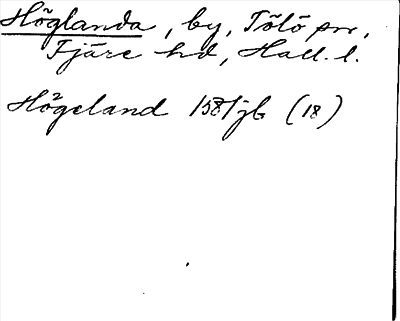 Höglanda, by, Tölö sn,
Fjäre hd, Hall. l.
Högeland 1581 jb (18)